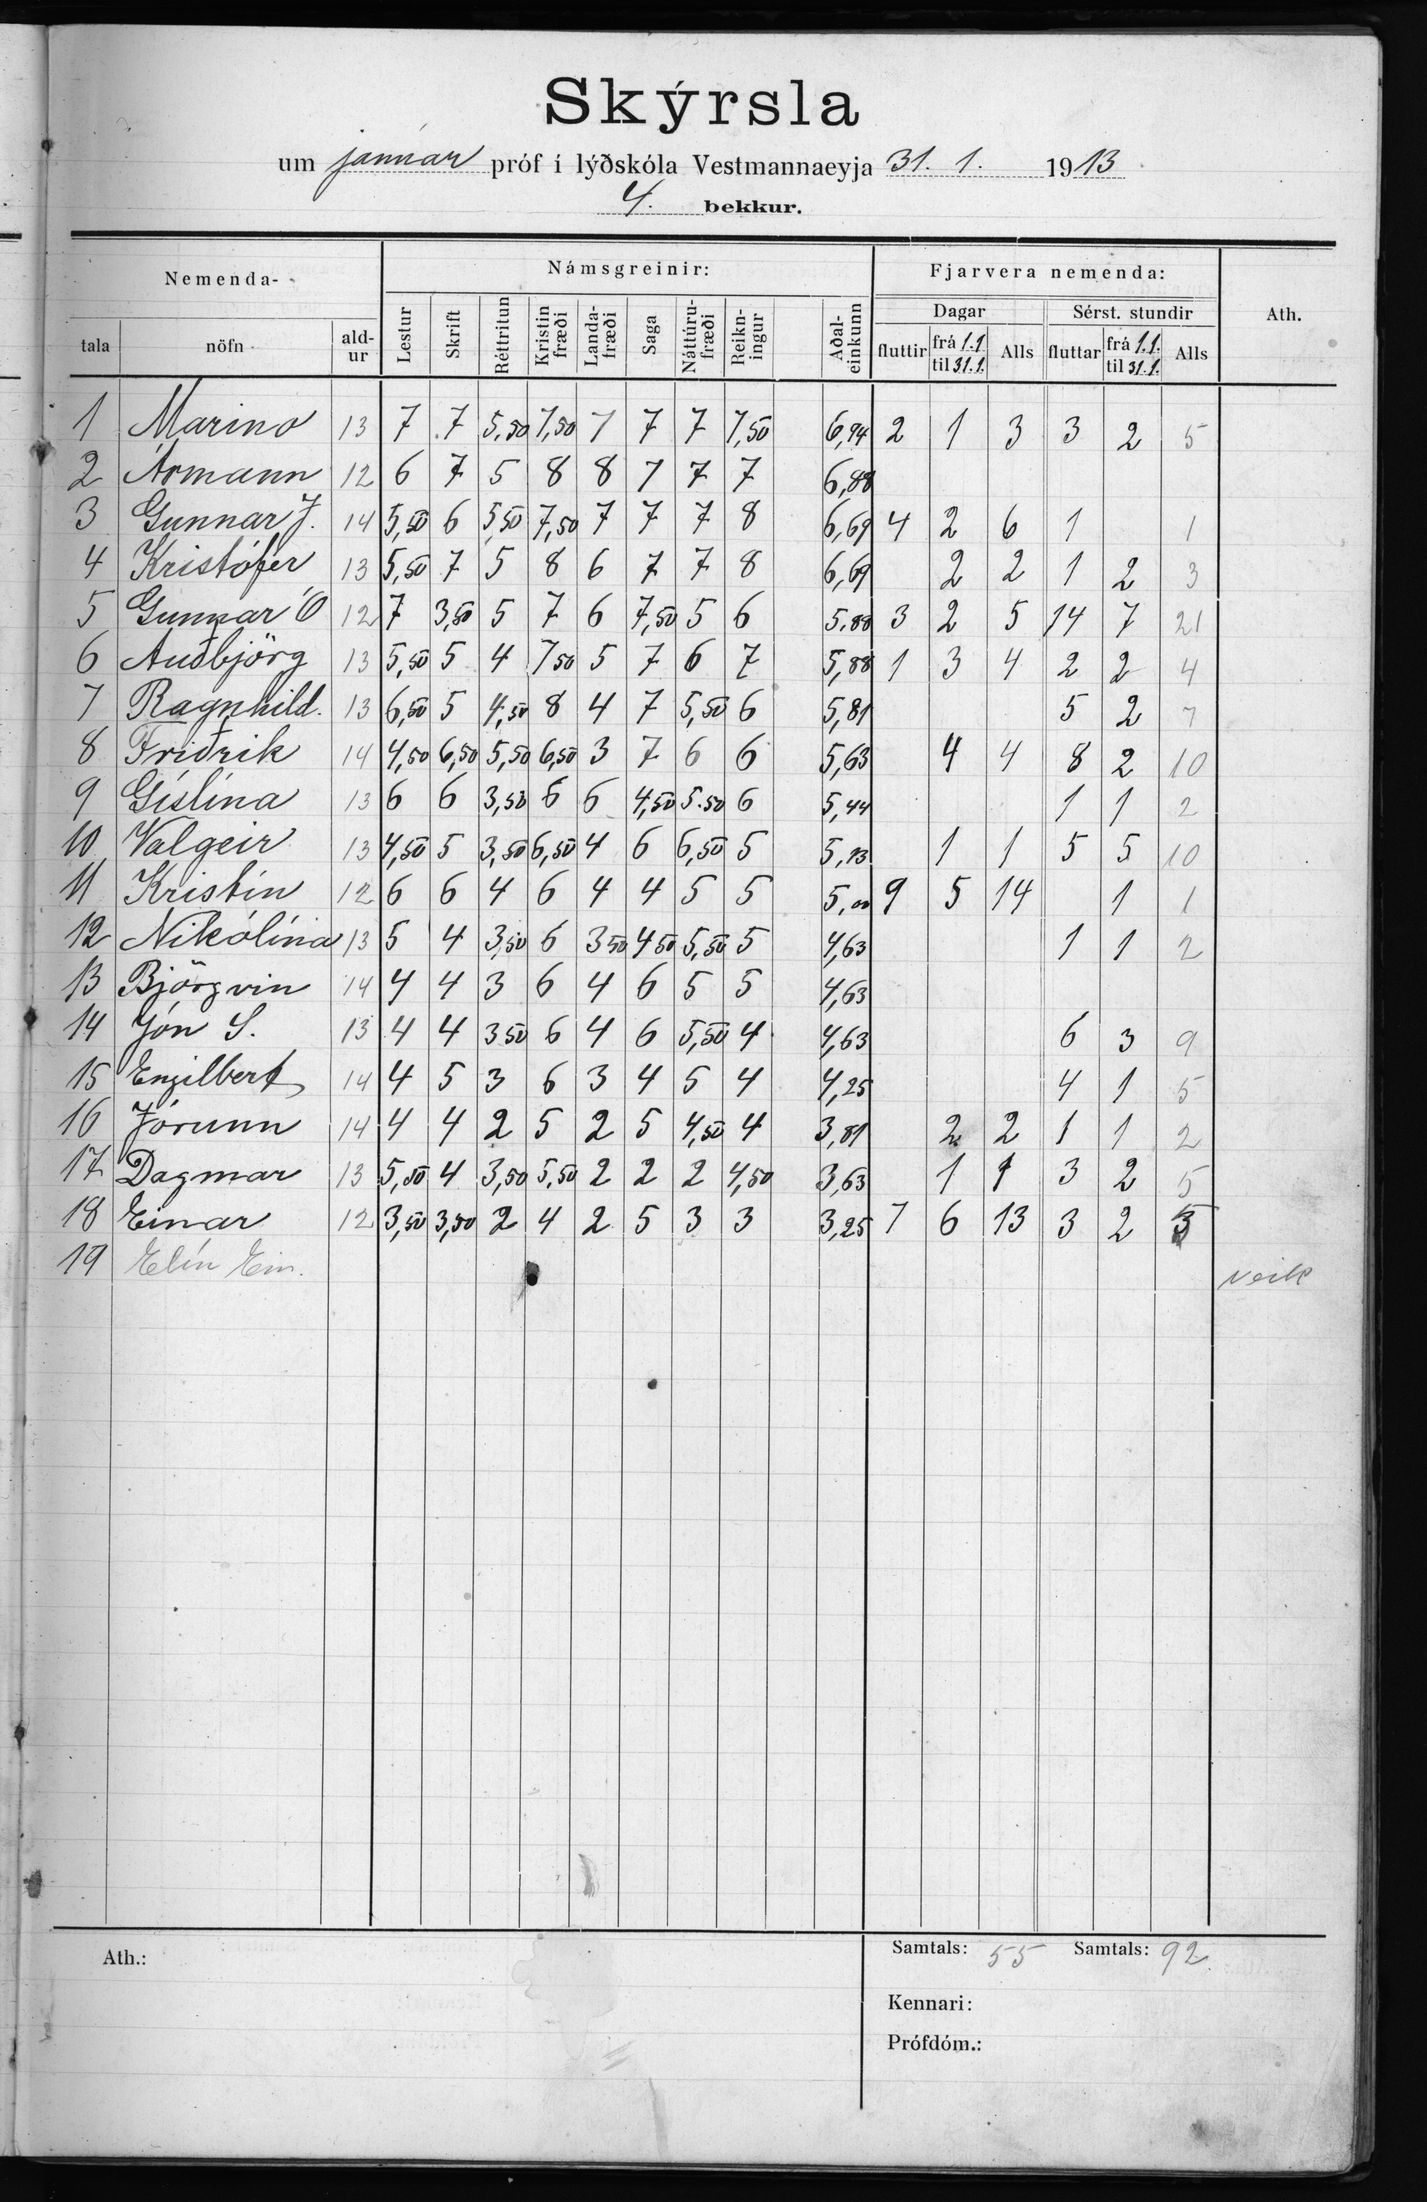 Skýrsla
um janúar próf í lýðskóla Vestmannaeyja 31. 1. 1913
4. bekkur.
Nemenda- Námsgreinir: Fjarvera nemenda: Ath.
Dagar Sérst. stundir
tala nöfn ald-ur Lestur Skrift Réttritun Kristinfræði Landa-fræði Saga Náttúru-fræði Reikn-ingur Aðal-einkunn fluttir frá 1.1. til 31.1. Alls fluttar frá 1.1. til 31.1. Alls
1 Marino 13 7 7 5,50 7,50 7 7 7 7,50 6,94 2 1 3 3 2 5
2 Ármann 12 6 7 5 8 8 7 7 7 6,88
3 Gunnar J. 14 5,50 6 5,50 7,50 7 7 7 8 6,69 4 2 6 1 1
4 Kristófer 13 5,50 7 5 8 6 7 7 8 6,69 2 2 1 2 3
5 Gunnar Ó 12 7 3,50 5 7 6 7,50 5 6 5,88 3 2 5 14 7 21
6 Auðbjörg 13 5,50 5 4 7 50 5 7 6 7 5,88 1 3 4 2 2 4
7 Ragnhild. 13 6,50 5 4,50 8 4 7 5,50 6 5,81 5 2 7
8 Friðrik 14 4,50 6,50 5,50 6,50 3 7 6 6 5,63 4 4 8 2 10
9 Gíslína 13 6 6 3,50 6 6 4,50 5.50 6 5,44 1 1 2
10 Valgeir 13 4,50 5 3,50 6,50 4 6 6,50 5 5,13 1 1 5 5 10
11 Kristín 12 6 6 4 6 4 4 5 5 5,00 9 5 14 1 1
12 Nikólína 13 5 4 3,50 6 3 50 4 50 5,50 5 4,63 1 1 2
13 Björgvin 14 4 4 3 6 4 6 5 5 4,63
14 Jón S. 13 4 4 3 50 6 4 6 5,50 4 4,63 6 3 9
15 Engilbert 14 4 5 3 6 3 4 5 4 4,25 4 1 5
16 Jórunn 14 4 4 2 5 2 5 4,50 4 3,81 2 2 1 1 2
17 Dagmar 13 5,50 4 3,50 5,50 2 2 2 4,50 3,63 1 1 3 2 5
18 Einar 12 3,50 3,50 2 4 2 5 3 3 3,25 7 6 13 3 2 5
19 Elín Ein. veik
Ath.: Samtals: 55 Samtals: 92
Kennari:
Prófdóm.: